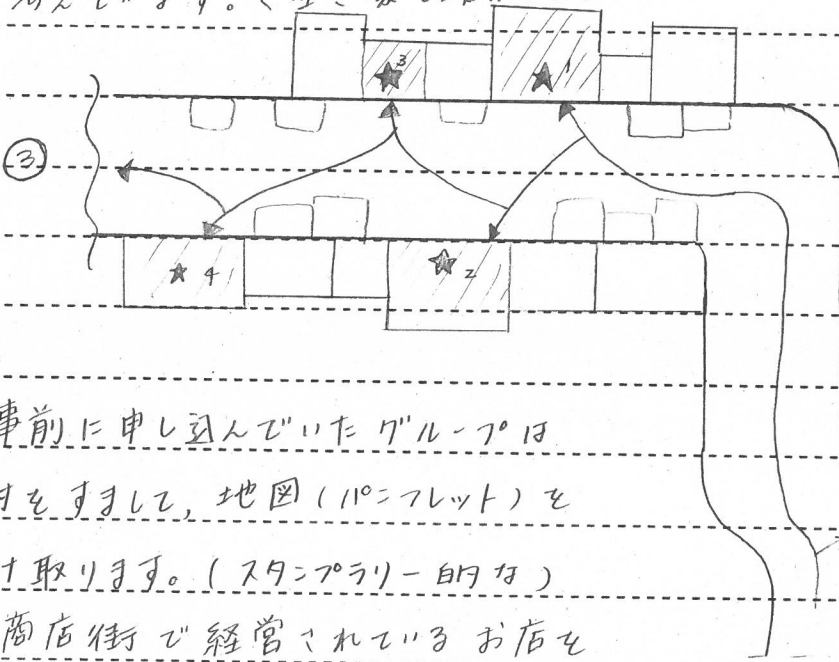 ます。
3
1
③
4
2
事前に申し込んでいたグループは
をすまして、地図(パンフレット)を
取ります。(スタンプラリー的な)
商店街で経営されているお店を